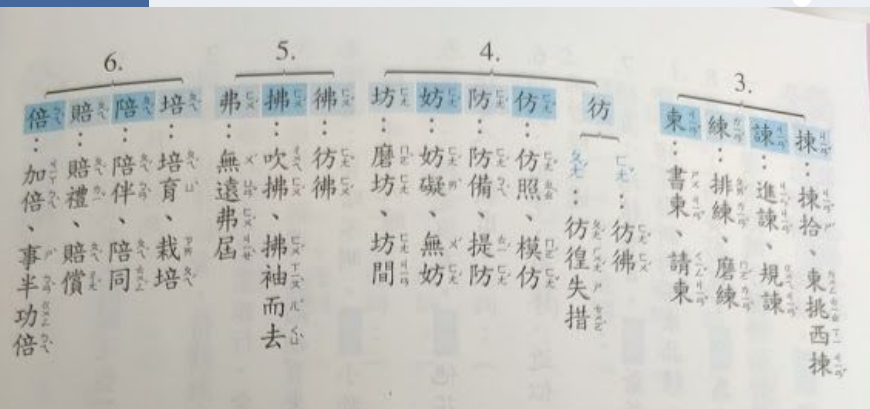 3.
揀：揀拾、東挑西揀
諫：進諫、規諫
練：排練、磨練
柬：書柬、請柬
4.
彷
ㄈㄤˇ：彷彿
ㄆㄤˊ：彷徨失措
仿：仿照、模仿
防：防備、提防
妨：妨礙、無妨
坊：磨坊、坊間
5.
彿：彷彿
拂：吹拂、拂袖而去
弗：無遠弗屆
6.
培：培育、栽培
陪：陪伴、陪同
賠：賠禮、賠償
倍：加倍、事半功倍